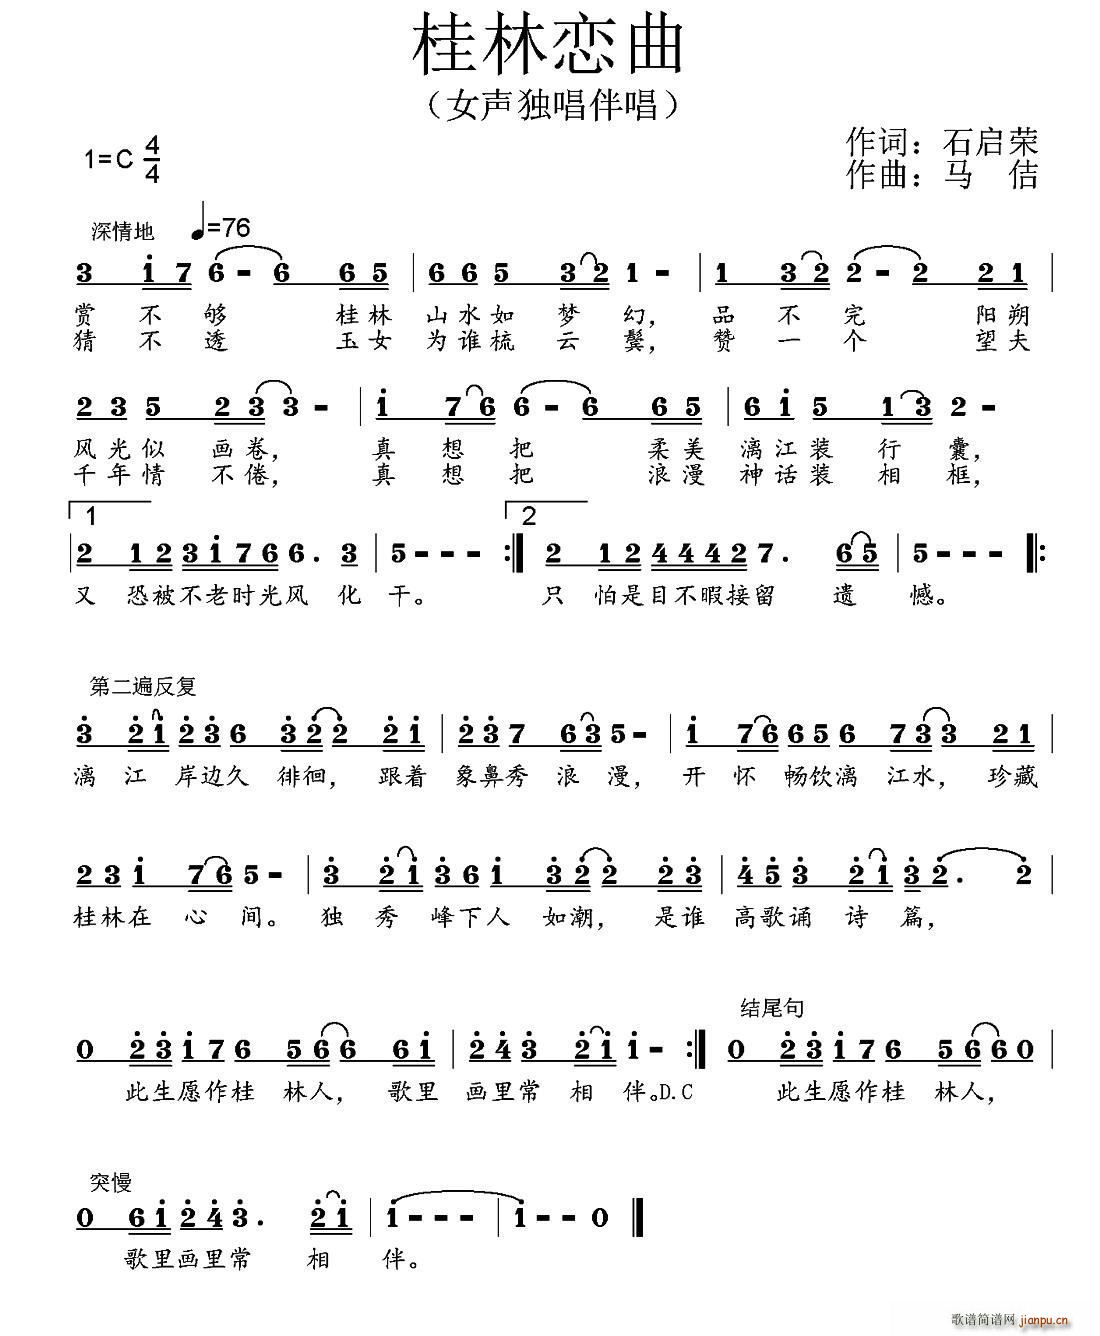 桂林恋曲
（女声独唱伴唱）
1=C 4/4
作词：石启荣
作曲：马 佶
深情地 ♩=76
3 i 7 6 - 6 6 5 | 6 6 5 3 2 1 - | 1 3 2 2 - 2 2 1 |
赏 不 够 桂 林 山 水 如 梦 幻， 品 不 完 阳 朔
猜 不 透 玉 女 为 谁 梳 云 鬓， 赞 一 个 望 夫
2 3 5 2 3 3 - | i 7 6 6 - 6 6 5 | 6 i 5 1 3 2 -
风 光 似 画 卷， 真 想 把 柔 美 漓 江 装 行 囊，
千 年 情 不 倦， 真 想 把 浪 漫 神 话 装 相 框，
1 2
| 2 1 2 3 i 7 6 6 . 3 | 5 - - - :| 2 1 2 4 4 4 2 7 . 6 5 | 5 - - - |:
又 恐被不老时光风 化 干。 只 怕是目不暇接留 遗 憾。
第二遍反复
3 2 i 2 3 6 3 2 2 2 i | 2 3 7 6 3 5 - | i 7 6 6 5 6 7 3 3 2 1 |
漓 江 岸边久 徘徊， 跟着 象鼻秀 浪 漫， 开 怀 畅饮漓 江水， 珍藏
2 3 i 7 6 5 - | 3 2 i 3 6 i 3 2 2 2 3 | 4 5 3 2 i 3 2 . 2 |
桂林在 心 间。 独 秀 峰下人 如潮， 是谁 高歌诵 诗 篇，
结尾句
0 2 3 i 7 6 5 6 6 6 i | 2 4 3 2 i i - :| 0 2 3 i 7 6 5 6 6 0
此生愿作桂 林人， 歌里 画里常 相 伴。D.C 此生愿作桂 林人，
突慢
0 6 i 2 4 3 . 2 i | i - - - | i - - 0 ‖
歌里画里常 相 伴。
歌谱简谱网 jianpu.cn